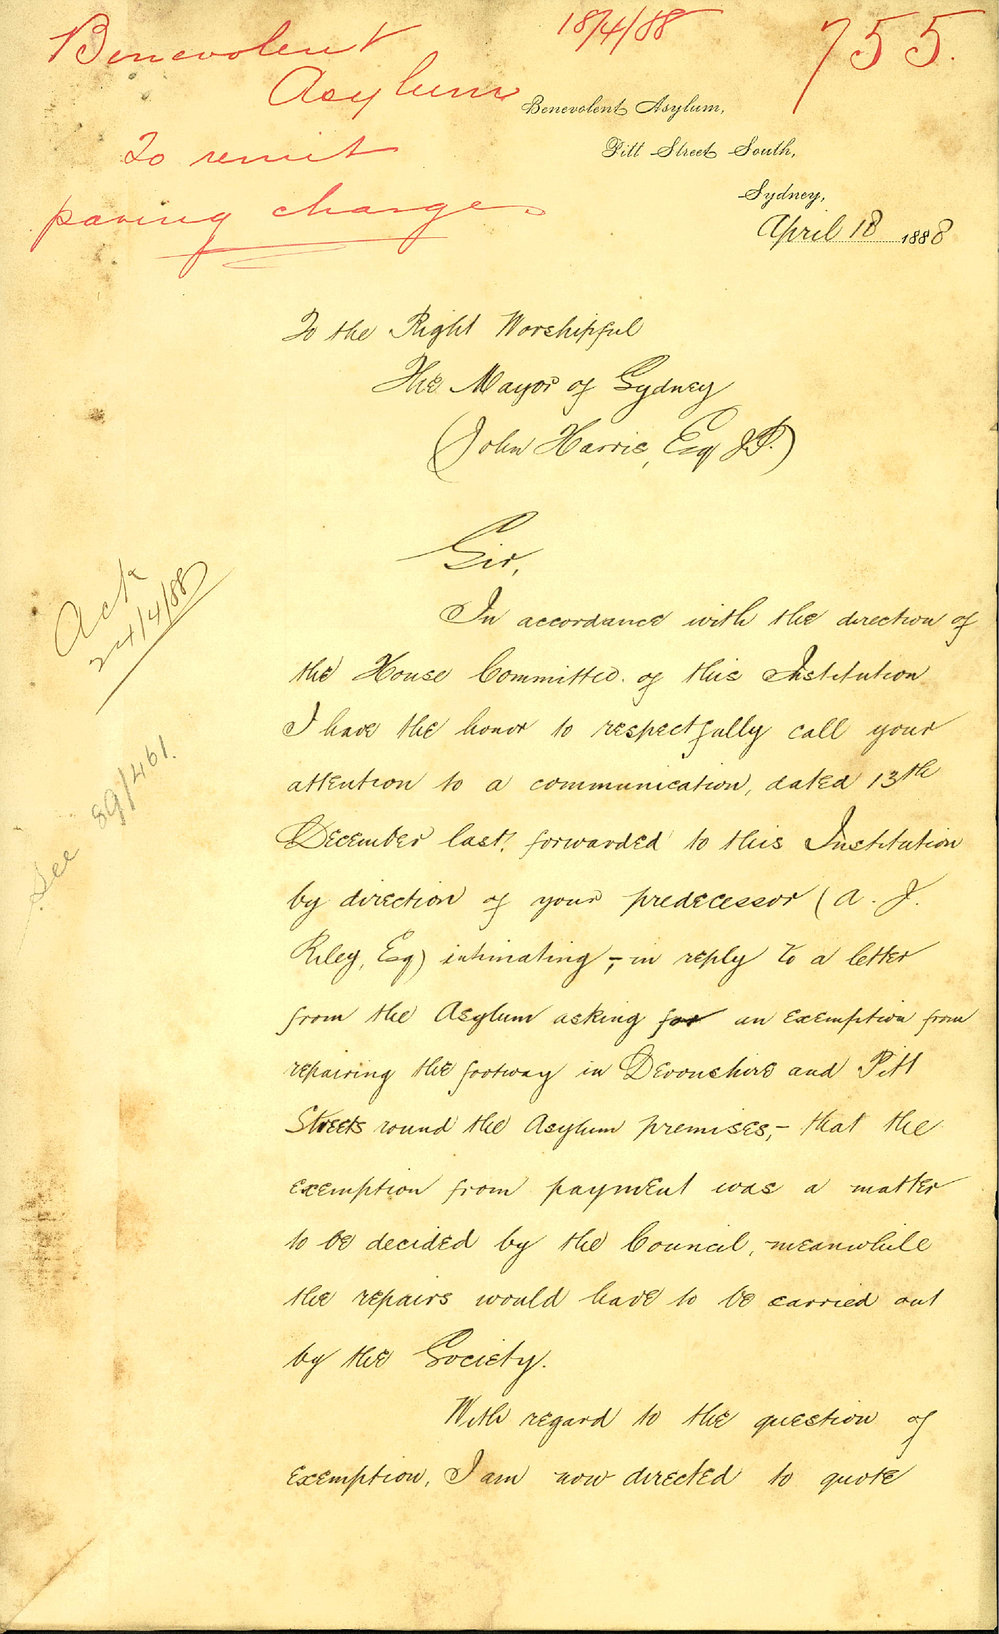 Benevolent
Asylum
To remit
paving charges
18/4/88
755.
Benevolent Asylum,
Pitt Street South,
Sydney,
April 18 1888
To the Right Worshipful
The Mayor of Sydney
(John Harris, Esq J.P.)
Sir,
In accordance with the direction of
the House Committee. of this Institution
I have the honor to respectfully call your
attention to a communication, dated 13th
December last, forwarded to this Institution
by direction of your predecessor (A. J.
Riley, Esq) intimating,- in reply to a letter
from the Asylum asking for an exemption from
repairing the footway in Devonshire and Pitt
Streets round the Asylum premises,- that the
exemption from payment was a matter
to be decided by the Council, meanwhile
the repairs would have to be carried out
by the Society.
With regard to the question of
exemption, I am now directed to quote
Ack
24/4/88
See 89/461.